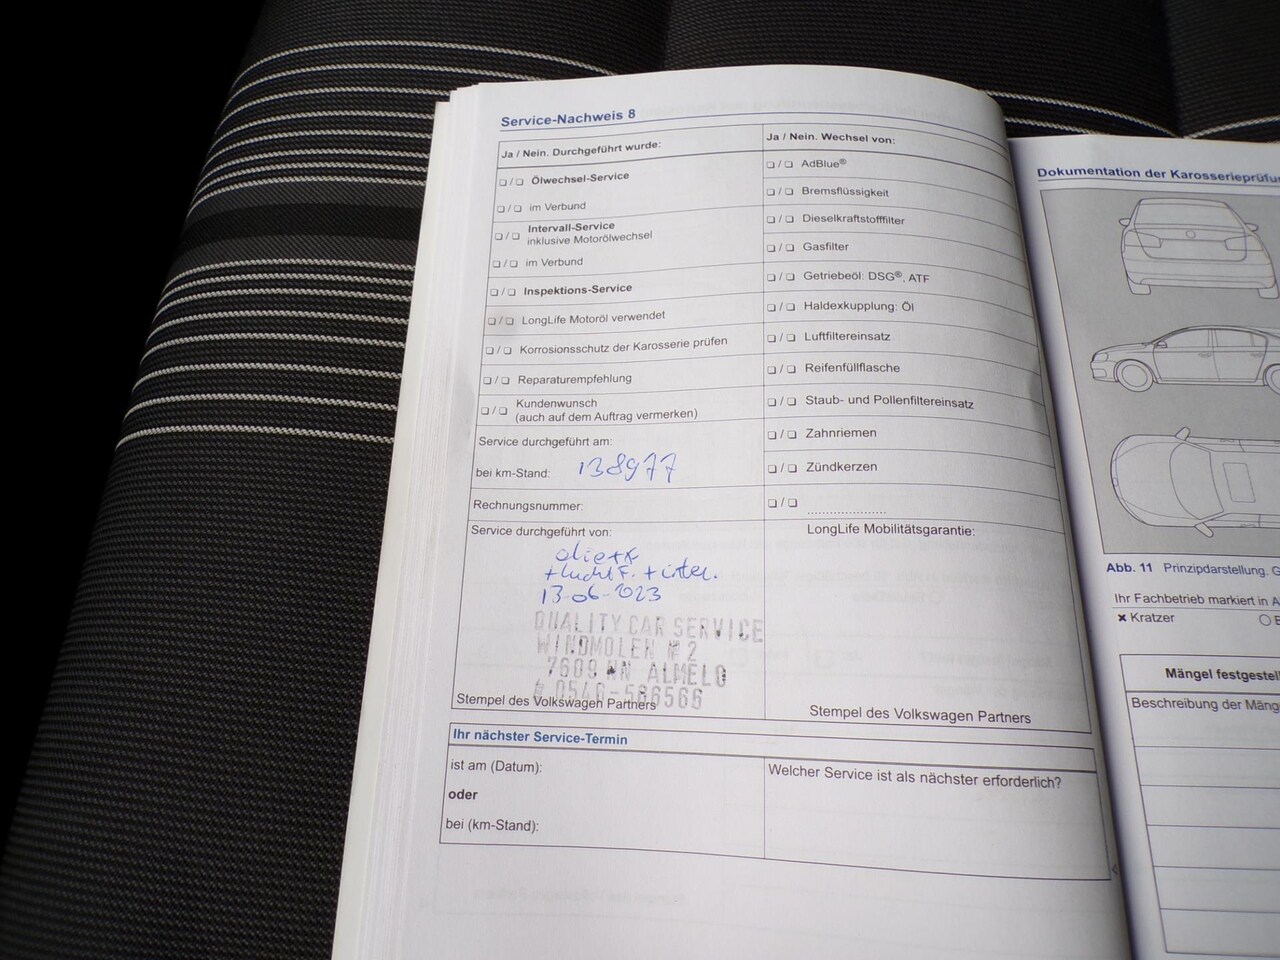 Service-Nachweis 8
Ja / Nein. Durchgeführt wurde:
❏ / ❏ Ölwechsel-Service
❏ / ❏ im Verbund
❏ / ❏ Intervall-Service
inklusive Motorölwechsel
❏ / ❏ im Verbund
❏ / ❏ Inspektions-Service
❏ / ❏ LongLife Motoröl verwendet
❏ / ❏ Korrosionsschutz der Karosserie prüfen
❏ / ❏ Reparaturempfehlung
❏ / ❏ Kundenwunsch
(auch auf dem Auftrag vermerken)
Service durchgeführt am:
bei km-Stand: 138977
Rechnungsnummer:
Service durchgeführt von:
olie + F
+ lucht F. + inter.
13-06-2023
QUALITY CAR SERVICE
WINDMOLEN № 2
7609 NN ALMELO
0540-586566
Stempel des Volkswagen Partners
Ja / Nein. Wechsel von:
❏ / ❏ AdBlue®
❏ / ❏ Bremsflüssigkeit
❏ / ❏ Dieselkraftstofffilter
❏ / ❏ Gasfilter
❏ / ❏ Getriebeöl: DSG®, ATF
❏ / ❏ Haldexkupplung: Öl
❏ / ❏ Luftfiltereinsatz
❏ / ❏ Reifenfüllflasche
❏ / ❏ Staub- und Pollenfiltereinsatz
❏ / ❏ Zahnriemen
❏ / ❏ Zündkerzen
❏ / ❏ ......................
LongLife Mobilitätsgarantie:
Stempel des Volkswagen Partners
Ihr nächster Service-Termin
ist am (Datum):
oder
bei (km-Stand):
Welcher Service ist als nächster erforderlich?
Dokumentation der Karosserieprüfun
Abb. 11 Prinzipdarstellung. G
Ihr Fachbetrieb markiert in A
✗ Kratzer
Mängel festgestel
Beschreibung der Mäng